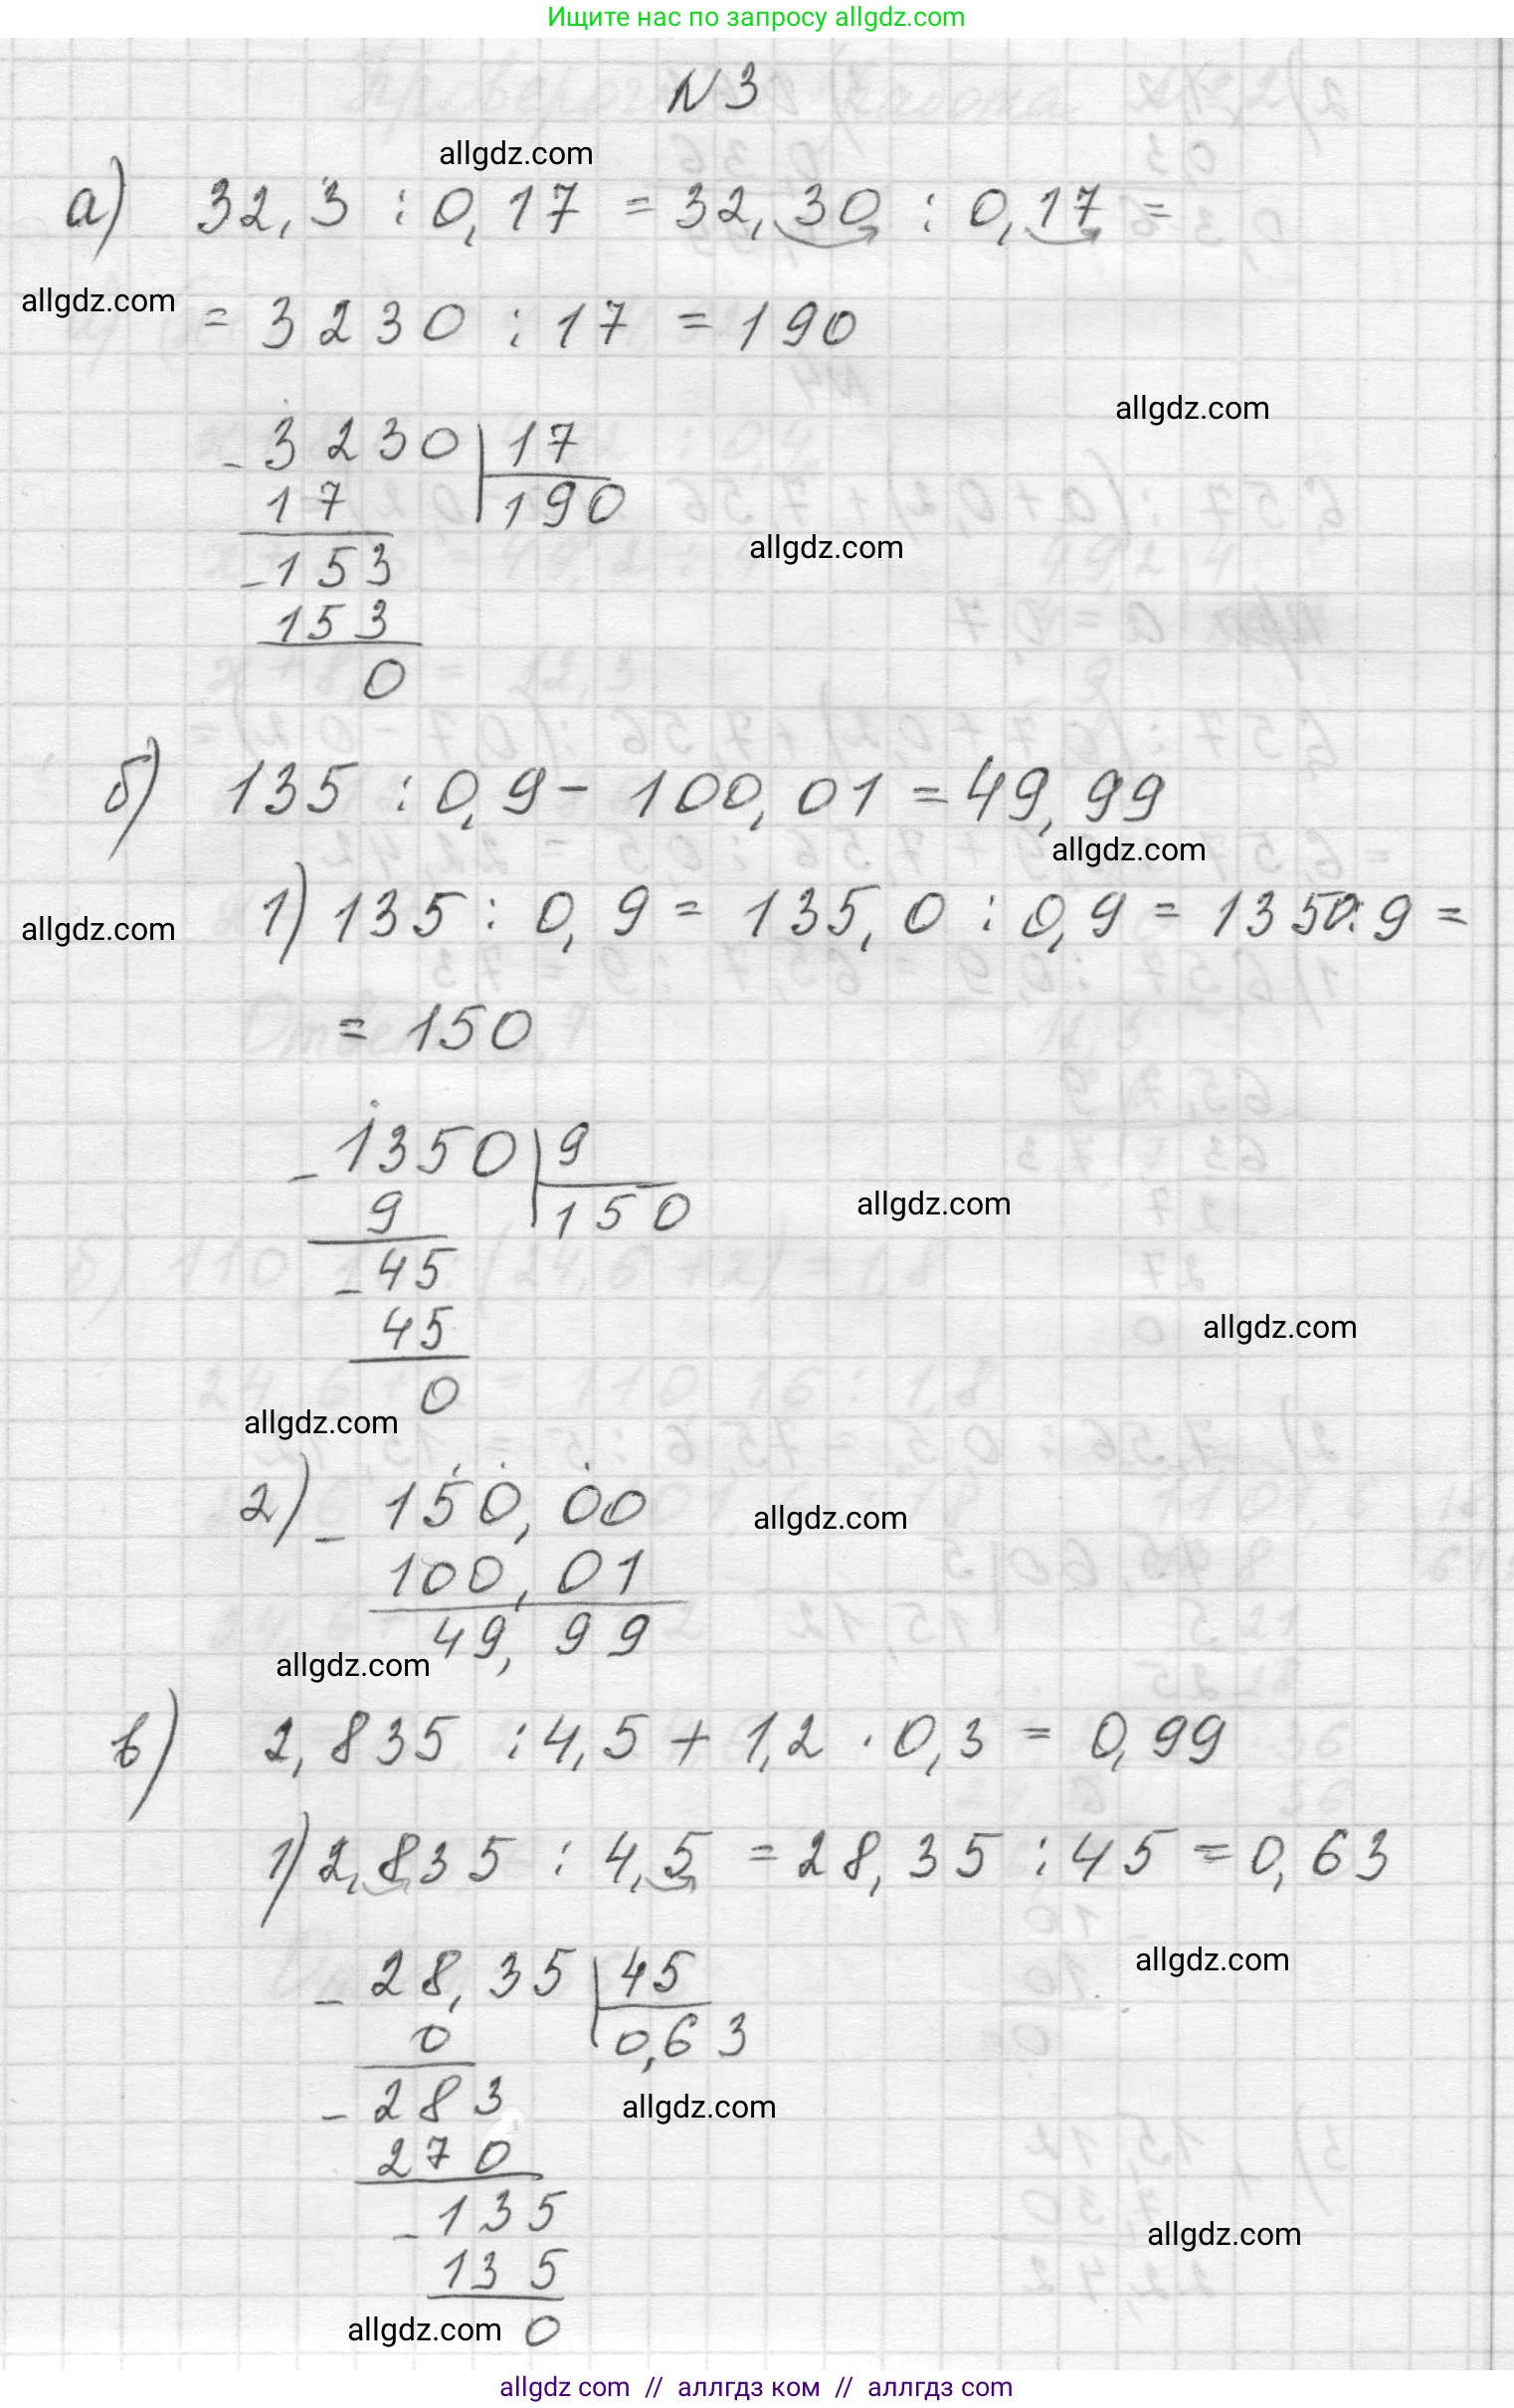 Ищите нас по запросу allgdz.com
N 3
allgdz.com
а) 32,3 : 0,17 = 32,30 : 0,17 =
allgdz.com
= 3230 : 17 = 190
allgdz.com
- 3230 | 17
17 | 190
allgdz.com
- 153
153
0
б) 135 : 0,9 - 100,01 = 49,99
allgdz.com
allgdz.com
1) 135 : 0,9 = 135,0 : 0,9 = 1350:9 =
= 150
- 1350 | 9
9 | 150
allgdz.com
- 45
45
allgdz.com
0
allgdz.com
2) - 150,00
allgdz.com
100,01
49,99
allgdz.com
в) 2,835 : 4,5 + 1,2 · 0,3 = 0,99
1) 2,835 : 4,5 = 28,35 : 45 = 0,63
allgdz.com
- 28,35 | 45
0 | 0,63
- 283
allgdz.com
270
- 135
allgdz.com
135
allgdz.com
0
allgdz com // аллгдз ком // аллгдз com